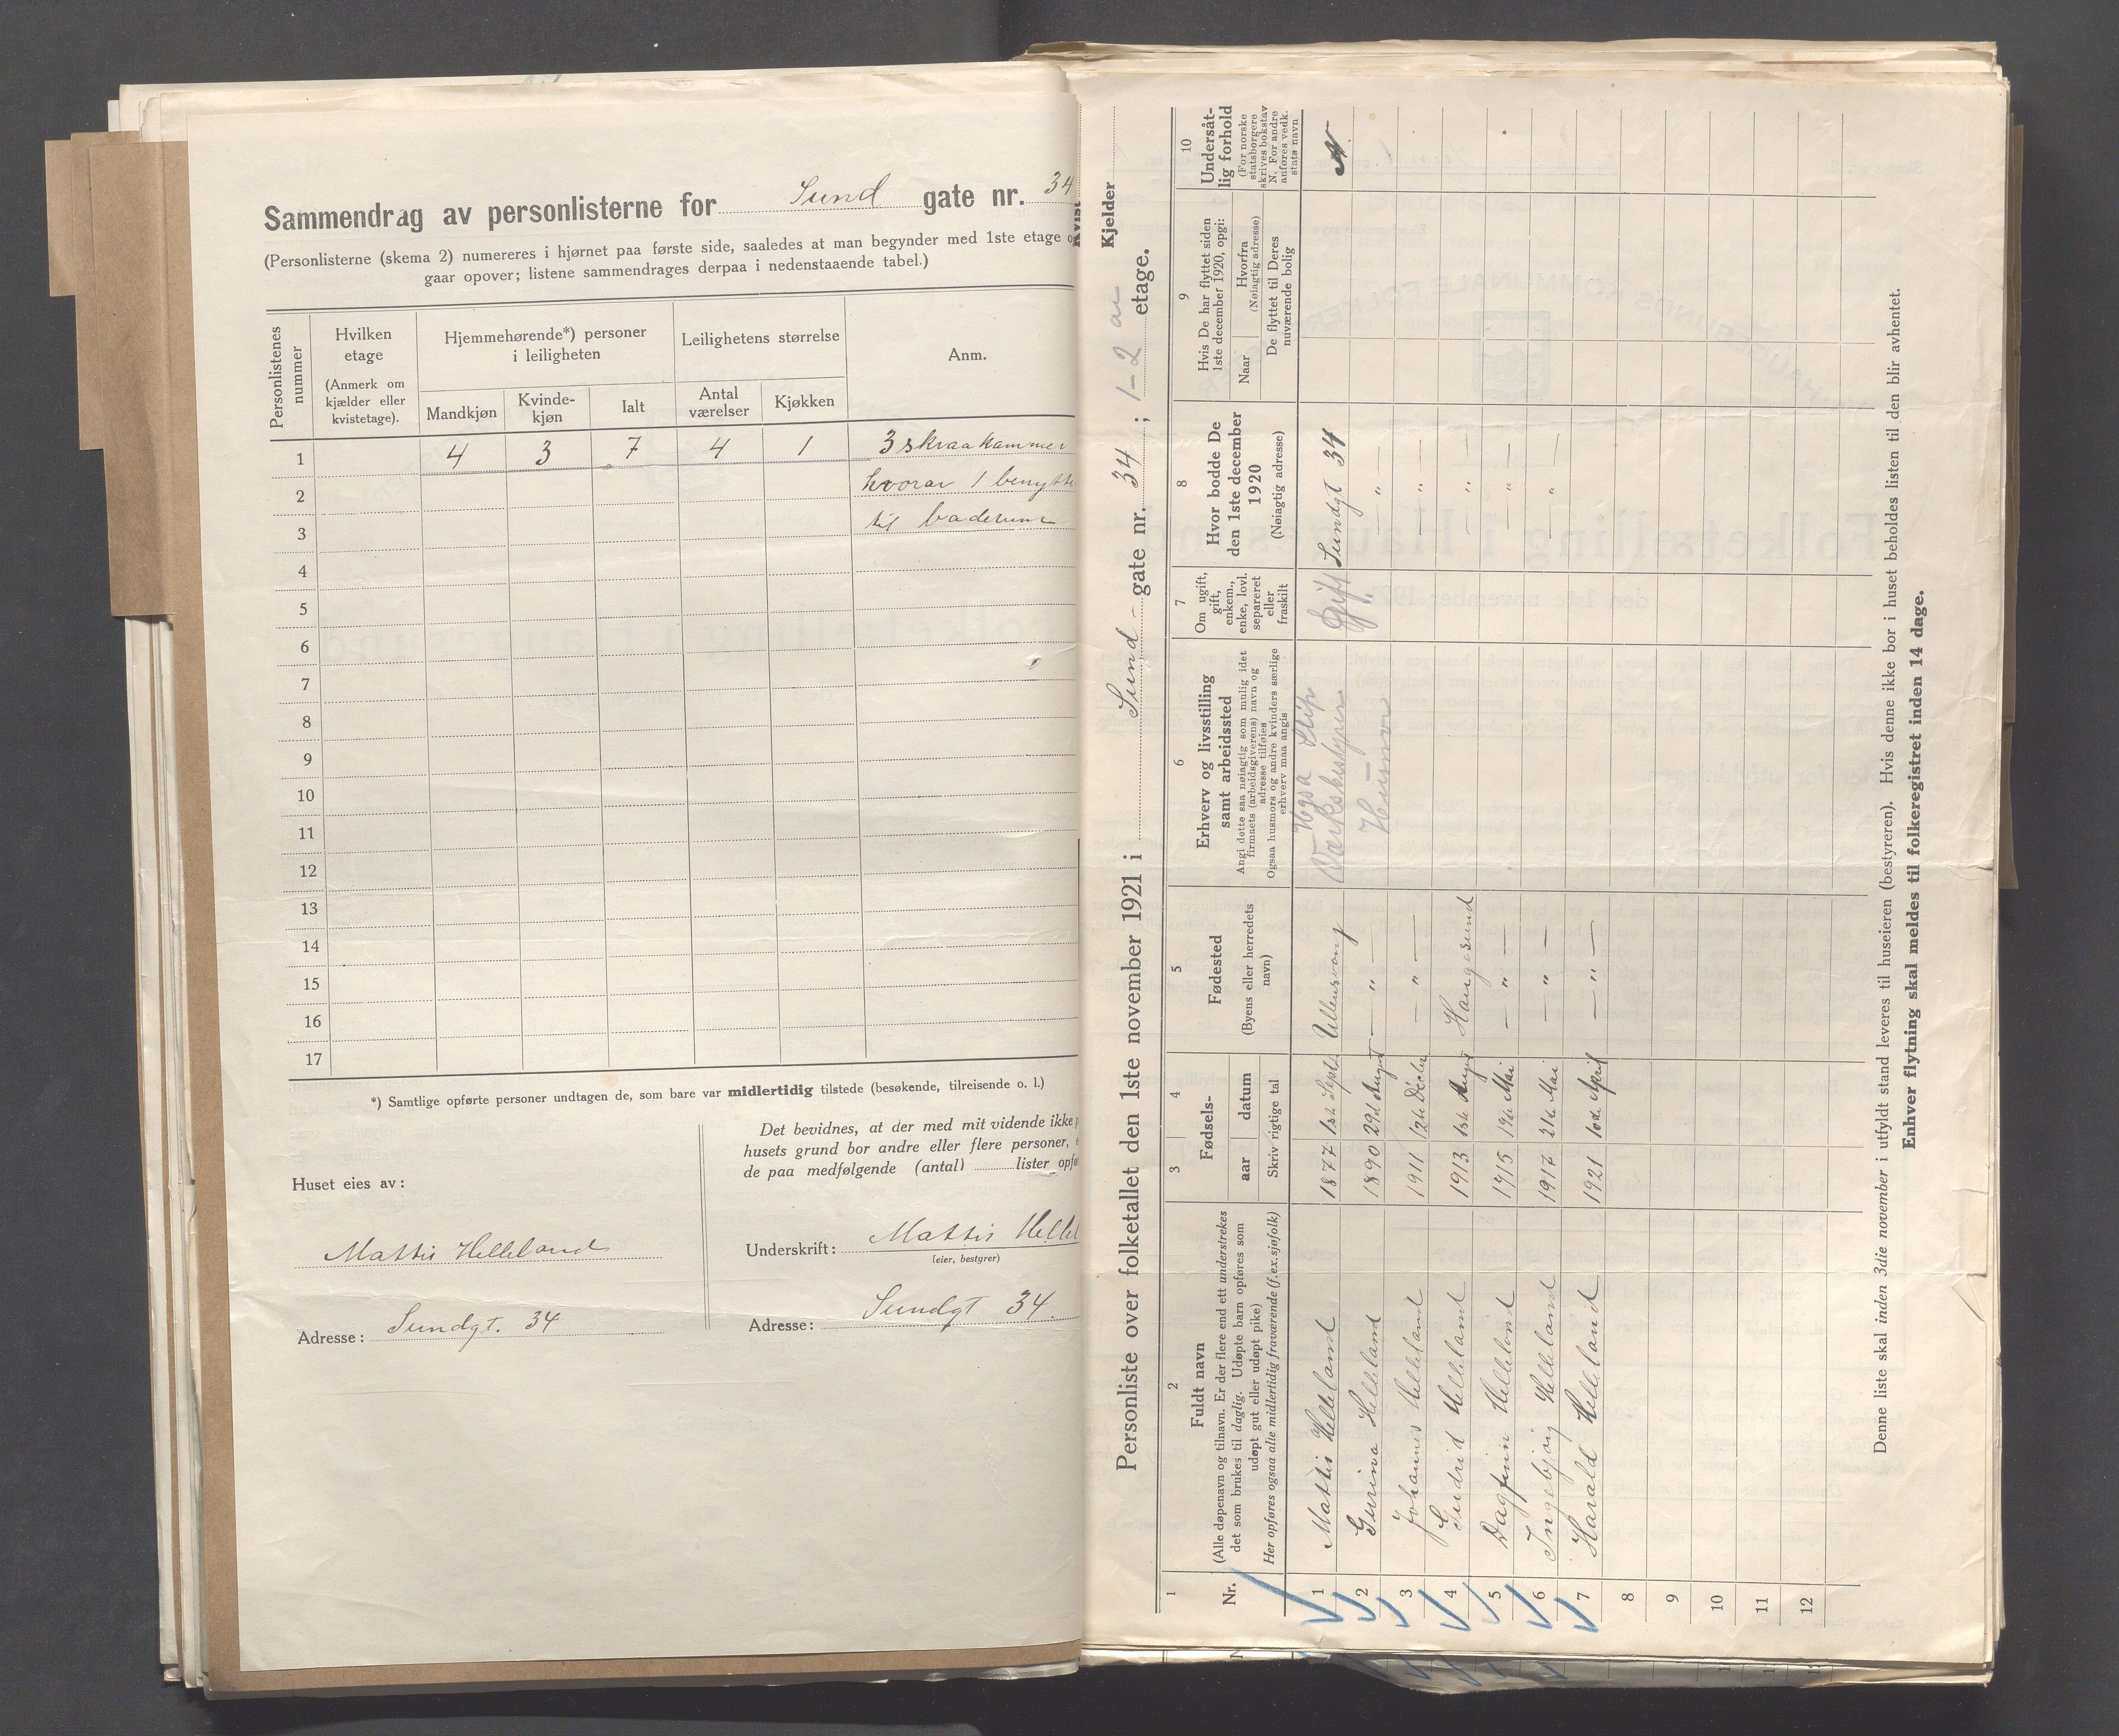 Sammendrag av personlisterne for Sund gate nr. 34
(Personlisterne (skema 2) numereres i hjørnet paa første side, saaledes at man begynder med 1ste etage o
gaar opover; listene sammendrages derpaa i nedenstaaende tabel.)
Personlistenes nummer
Hvilken etage
(Anmerk om kjælder eller kvistetage).
Hjemmehørende*) personer i leiligheten
Leilighetens størrelse
Anm.
Mandkjøn
Kvinde-kjøn
Ialt
Antal værelser
Kjøkken
1 4 3 7 4 1 3 skraakammer
2 hvorav 1 benytte
3 til baderum
4
5
6
7
8
9
10
11
12
13
14
15
16
17
*) Samtlige opførte personer undtagen de, som bare var midlertidig tilstede (besøkende, tilreisende o. l.)
Det bevidnes, at der med mit vidende ikke p
husets grund bor andre eller flere personer, e
de paa medfølgende (antal) lister opfø
Huset eies av:
Mattis Helleland
Adresse: Sundgt. 34
Underskrift: Mattis Hellel
(eier, bestyrer)
Adresse: Sundgt 34.
Kvist
Kjelder
Personliste over folketallet den 1ste november 1921 i Sund gate nr. 34; 1-2 etage.
1
Nr.
2
Fuldt navn
(Alle døpenavn og tilnavn. Er der flere end ett understrekes
det som brukes til daglig. Udøpte barn opføres som
udøpt gut eller udøpt pike)
Her opføres ogsaa alle midlertidig fraværende (f.ex.sjøfolk)
3 4
Fødsels-
aar datum
Skriv rigtige tal
5
Fødested
(Byens eller herredets
navn)
6
Erhverv og livsstilling
samt arbeidssted
Angi dette saa nøiagtig som mulig idet
firmaets (arbeidsgiverens) navn og
adresse tilføies
Ogsaa husmors og andre kvinders særlige
erhverv maa angis
7
Om ugift,
gift,
enkem.,
enke, lovl.
separeret
eller
fraskilt
8
Hvor bodde De
den 1ste december
1920
(Nøiagtig adresse)
9
Hvis De har flyttet siden
1ste december 1920, opgi:
Naar
Hvorfra
(Nøiagtig adresse)
De flyttet til Deres
nuværende bolig
10
Undersåt-
lig forhold
(For norske
statsborgere
skrives bokstav
N. For andre
anføres vedk.
stats navn
1 Mattis Helleland 1877 1ste Sept. Ullensvang Hgsa Slip Værksbestyrer Gift Sundgt 34 N
2 Gurina Helleland 1890 29de August — " — Husmor " — " —
3 Johannes Helleland 1911 12te Decbr — " — — " —
4 Gudrid Helleland 1913 1ste August Haugesund — " —
5 Dagfinn Helleland 1915 19de Mai — " — — " —
6 Ingebjørg Helleland 1917 21de Mai — " — — " —
7 Harald Helleland 1921 10de April — " —
8
9
10
11
12
Denne liste skal inden 3die november i utfyldt stand leveres til huseieren (bestyreren). Hvis denne ikke bor i huset beholdes listen til den blir avhentet.
Enhver flytning skal meldes til folkeregistret inden 14 dage.